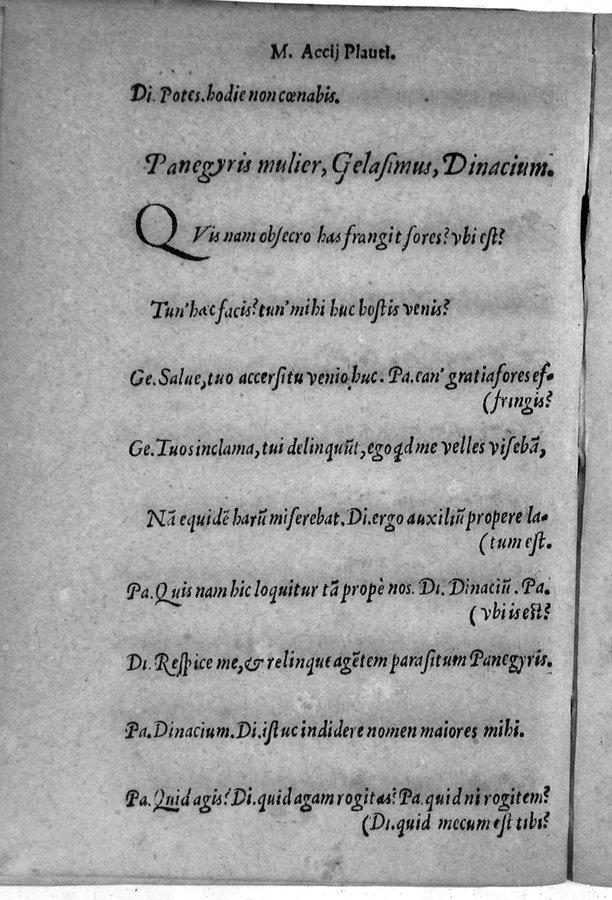 M. Accij Plauti.
Di. Potes. hodie non cœnabis.
Panegyris mulier, Gelaſimus, Dinacium.
QVis nam obſecro has frangit fores? vbi eſt?
Tun' hæc facis? tun' mihi huc hoſtis venis?
Ge. Salue, tuo accerſitu venio huc. Pa. can' gratia fores ef-
(fringis?
Ge. Tuos inclama, tui delinquũt, ego qd me velles viſebã,
Nã equidẽ harũ miſerebat. Di. ergo auxiliũ propere la-
(tum eſt.
Pa. Quis nam hic loquitur tã propè nos. Di. Dinaciũ. Pa.
(vbi is est?
Di. Reſpice me, & relinque agẽtem paraſitum Panegyris.
Pa. Dinacium. Di. iſtuc indidere nomen maiores mihi.
Pa. Quid agis? Di. quid agam rogitas? Pa. quid ni rogitem?
(Di. quid mecum eſt tibi?